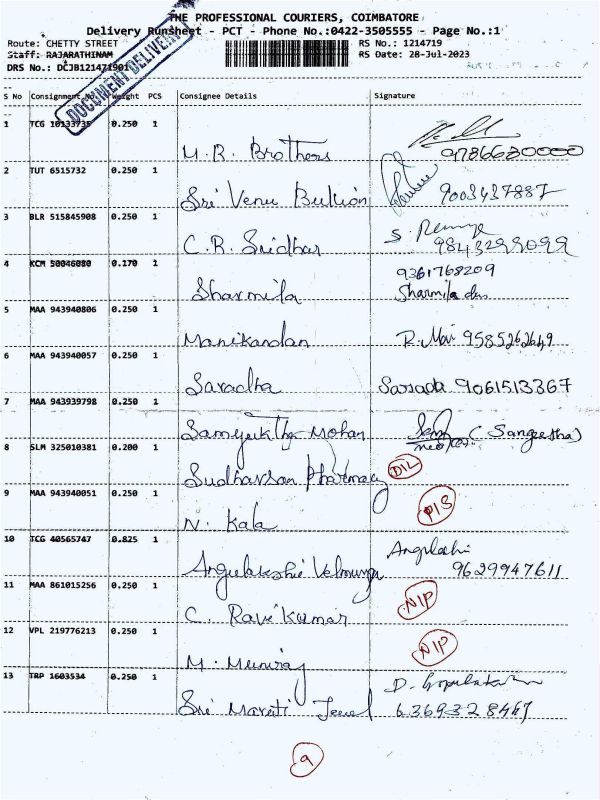 THE PROFESSIONAL COURIERS, COIMBATORE
Delivery Runsheet - PCT - Phone No.:0422-3505555 - Page No.:1
Route: CHETTY STREET RS No.: 1214719
Staff: RAJARATHINAM RS Date: 28-Jul-2023
DRS No.: DCJB121471901
DOCUMENT DELIVERY
S No Consignment No. Weight PCS Consignee Details Signature
1 TCG 10133735 0.250 1
M.R. Brothers 9786680000
2 TUT 6515732 0.250 1
Sri Venu Bullion 9003437887
3 BLR 515845908 0.250 1
C.R. Sridhar 9843299099
4 KCM 50046080 0.170 1
9361768209
Sharmila Sharmila
5 MAA 943940806 0.250 1
Manikandan R. Mani 9585262649
6 MAA 943940057 0.250 1
Saradha Sarada 9061513367
7 MAA 943939798 0.250 1
Samyuktha Mohan (Sangeetha)
8 SLM 325010381 0.200 1
Sudharsan Pharmacy D/L
9 MAA 943940051 0.250 1
N. Kala P/S
10 TCG 40565747 0.825 1
Velmurugan 9629947611
11 MAA 861015256 0.250 1
C. Ravi Kumar N/P
12 VPL 219776213 0.250 1
M. Muniraj N/P
13 TRP 1603534 0.250 1
Sri Maruti Jewel 6369328467
9